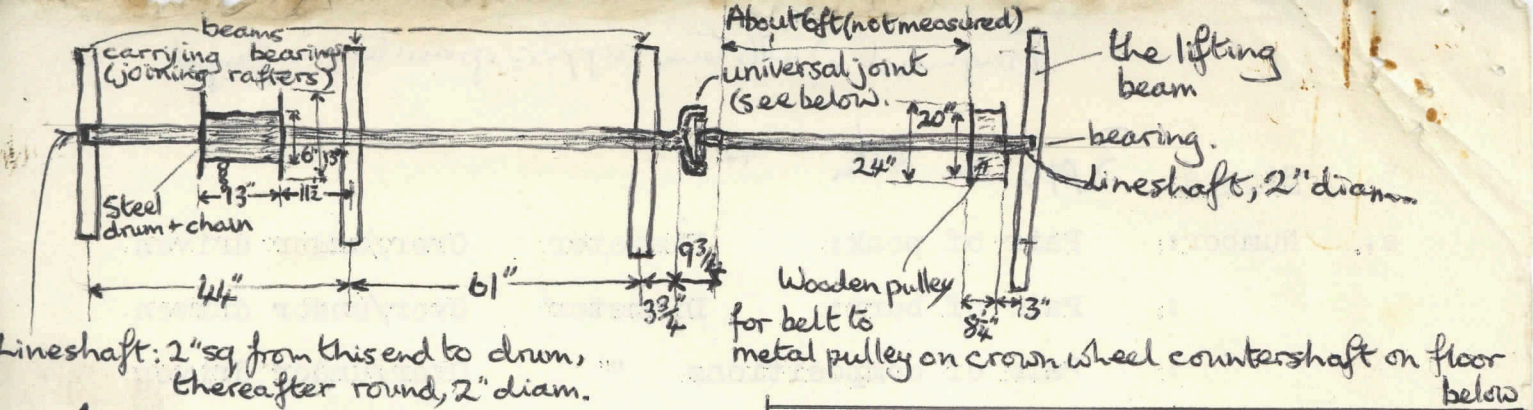 beams
carrying bearings
(joining rafters)
About 6ft (not measured)
universal joint
(see below.
the lifting
beam
bearing.
Lineshaft, 2" diam.
6"
13"
20"
24"
Steel
drum + chain
13"
11½"
44"
61"
3¾"
9¾"
Wooden pulley
for belt to
metal pulley on crown wheel countershaft on floor
below
8¼"
3"
Lineshaft: 2"sq from this end to drum,
thereafter round, 2" diam.